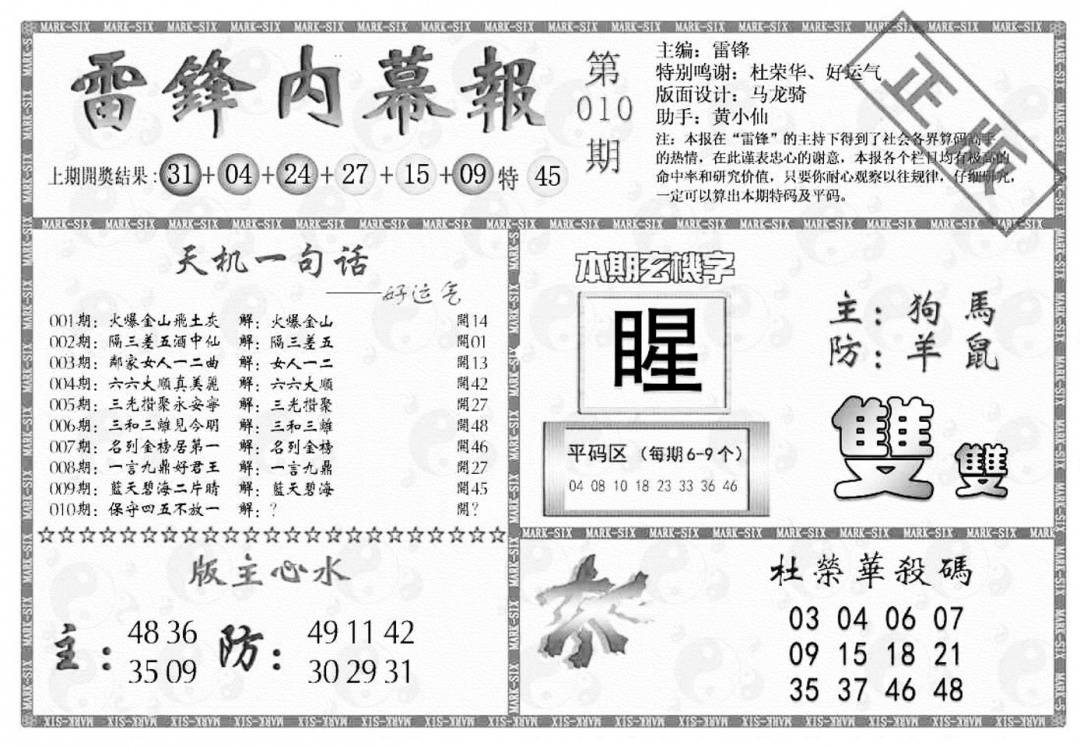 MARK-SIX
雷鋒内幕報
第
010
期
主编：雷锋
特别鸣谢：杜荣华、好运气
版面设计：马龙骑
助手：黄小仙
注：本报在“雷锋”的主持下得到了社会各界算码高手
的热情，在此谨表忠心的谢意，本报各个栏目均有极高的
命中率和研究价值，只要你耐心观察以往规律，仔细研究，
一定可以算出本期特码及平码。
正版
上期開獎結果：31+04+24+27+15+09 特 45
天机一句话
——好运气
001期：火爆金山飛土灰 解：火爆金山 開14
002期：隔三差五酒中仙 解：隔三差五 開01
003期：鄰家女人一二曲 解：女人一二 開13
004期：六六大順真美麗 解：六六大順 開42
005期：三光攢聚永安寧 解：三光攢聚 開27
006期：三和三離見今明 解：三和三離 開48
007期：名列金榜居第一 解：名列金榜 開46
008期：一言九鼎好君王 解：一言九鼎 開27
009期：藍天碧海二片晴 解：藍天碧海 開45
010期：保守四五不放一 解：？ 開？
本期玄機字
睲
主：狗 馬
防：羊 鼠
雙 雙
平码区（每期6-9个）
04 08 10 18 23 33 36 46
☆☆☆☆☆☆☆☆☆☆☆☆☆☆☆☆☆☆☆☆☆☆☆☆
版主心水
主：48 36
35 09
防：49 11 42
30 29 31
杀
杜榮華殺碼
03 04 06 07
09 15 18 21
35 37 46 48